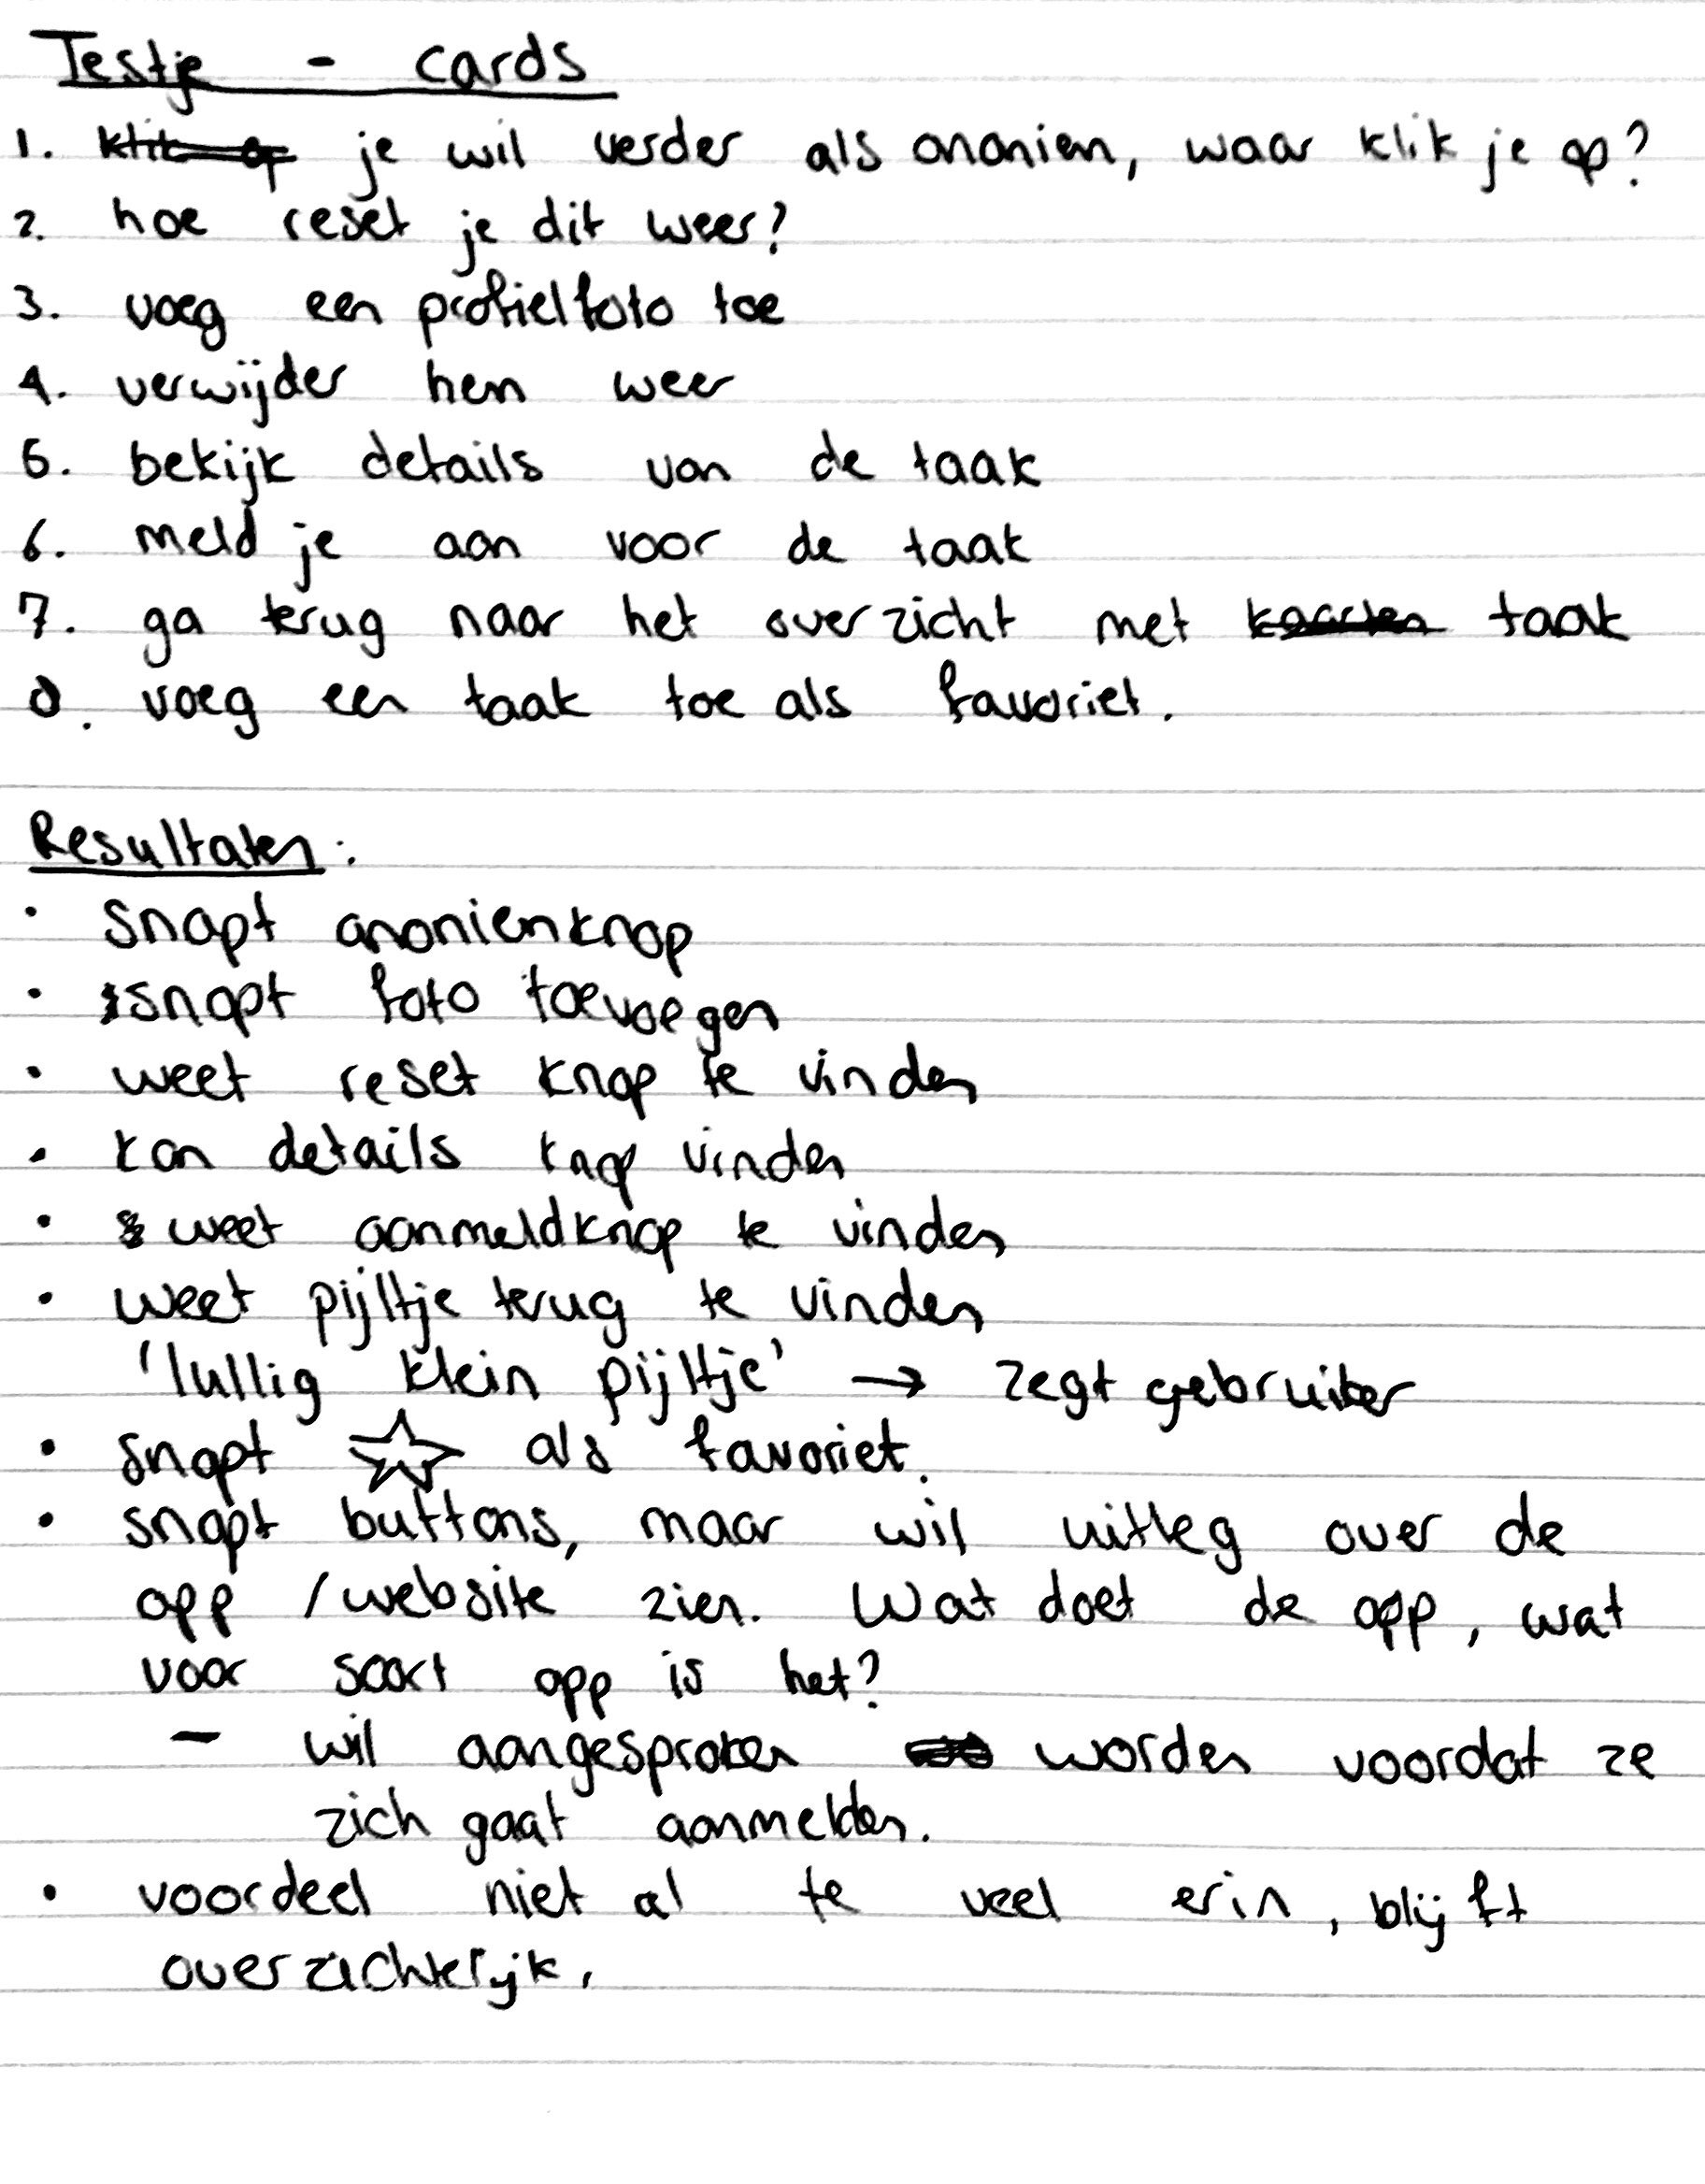 Testje - cards
1. klik op je wil verder als anoniem, waar klik je op?
2. hoe reset je dit weer?
3. voeg een profielfoto toe
4. verwijder hem weer
5. bekijk details van de taak
6. meld je aan voor de taak
7. ga terug naar het overzicht met kaarten taak
8. voeg een taak toe als favoriet.
Resultaten:
• snapt anoniemknop
• snapt foto toevoegen
• weet reset knop te vinden
• kan details knop vinden
• weet aanmeldknop te vinden
• weet pijltje terug te vinden
'lullig klein pijltje' → zegt gebruiker
• snapt ☆ als favoriet.
• snapt buttons, maar wil uitleg over de
app / website zien. Wat doet de app, wat
voor soort app is het?
- wil aangesproken worden voordat ze
zich gaat aanmelden.
• voordeel niet al te veel erin, blijft
overzichtelijk.